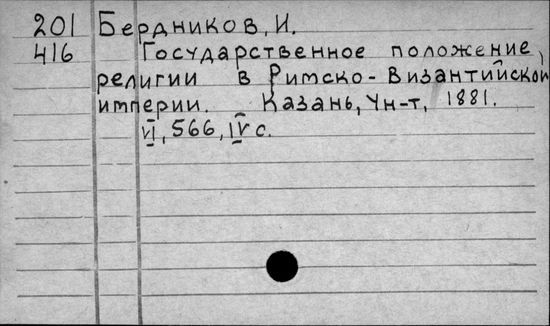 201 Бердников, И.
416 Государственное положение
религии в Римско-Византийской
империи. Казань, Ун-т, 1881.
VI, 566, IV с.